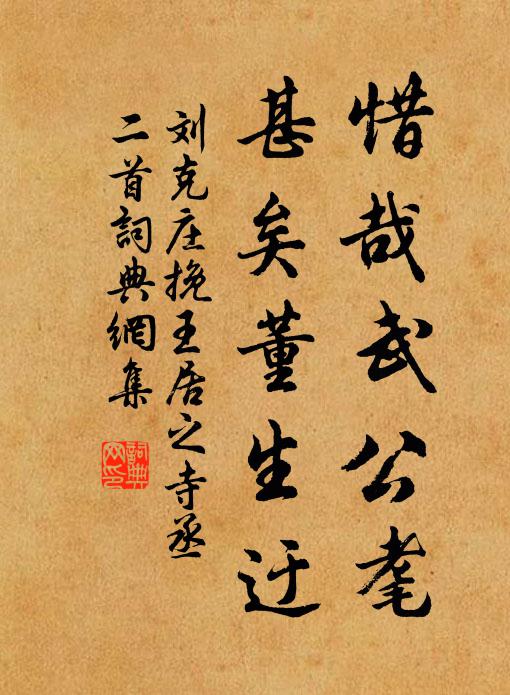 惜哉武公耄
甚矣董生迂
刘克庄挽王居之寺丞
二首詞典網集
詞典网印